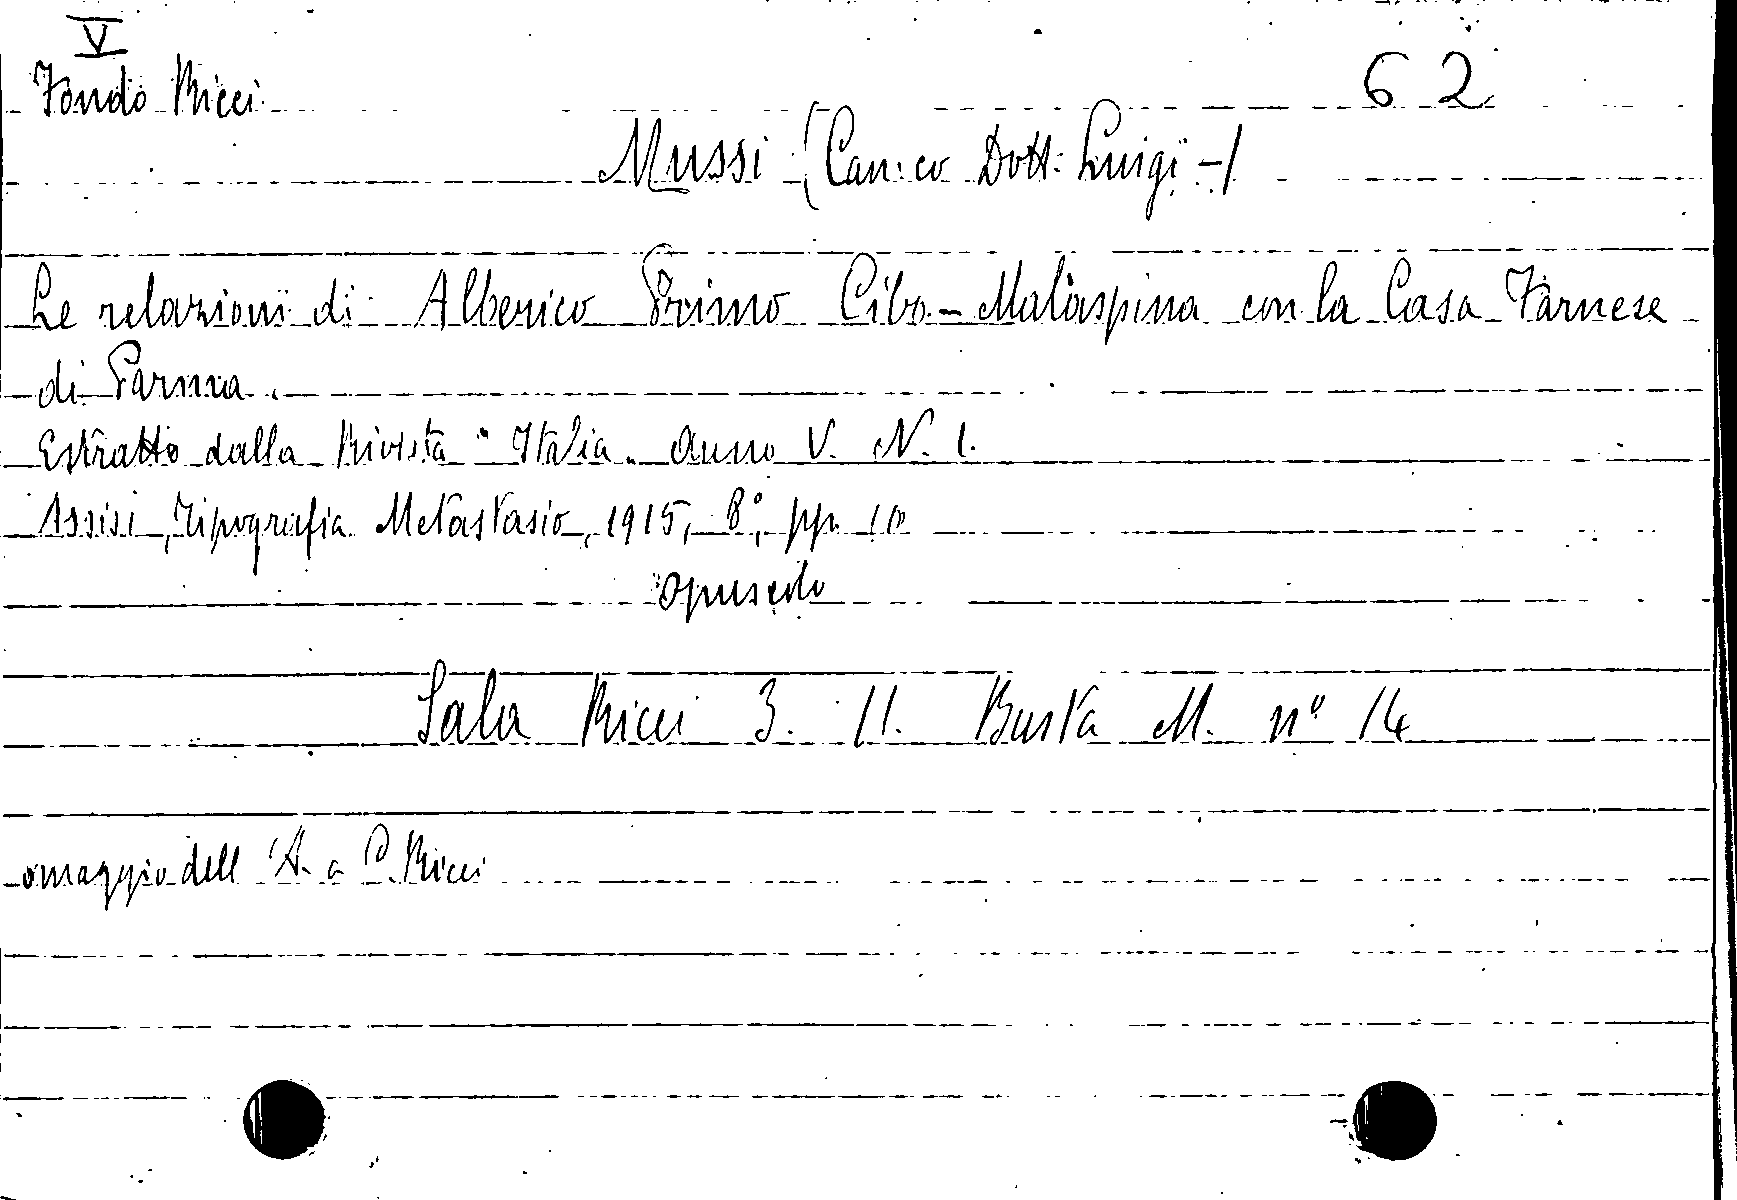 V
Fondo Ricci
62
Mussi (Can.co Dott. Luigi -)
Le relazioni di Alberico Primo Cibo-Malaspina con la Casa Farnese
di Parma.
Estratto dalla Rivista "Italia. Anno V. N. 1.
Assisi, Tipografia Metastasio, 1915, 8°, pp. 10
opuscolo
Sala Ricci 3. 11. Busta M. n° 14
omaggio dell'A. a C. Ricci